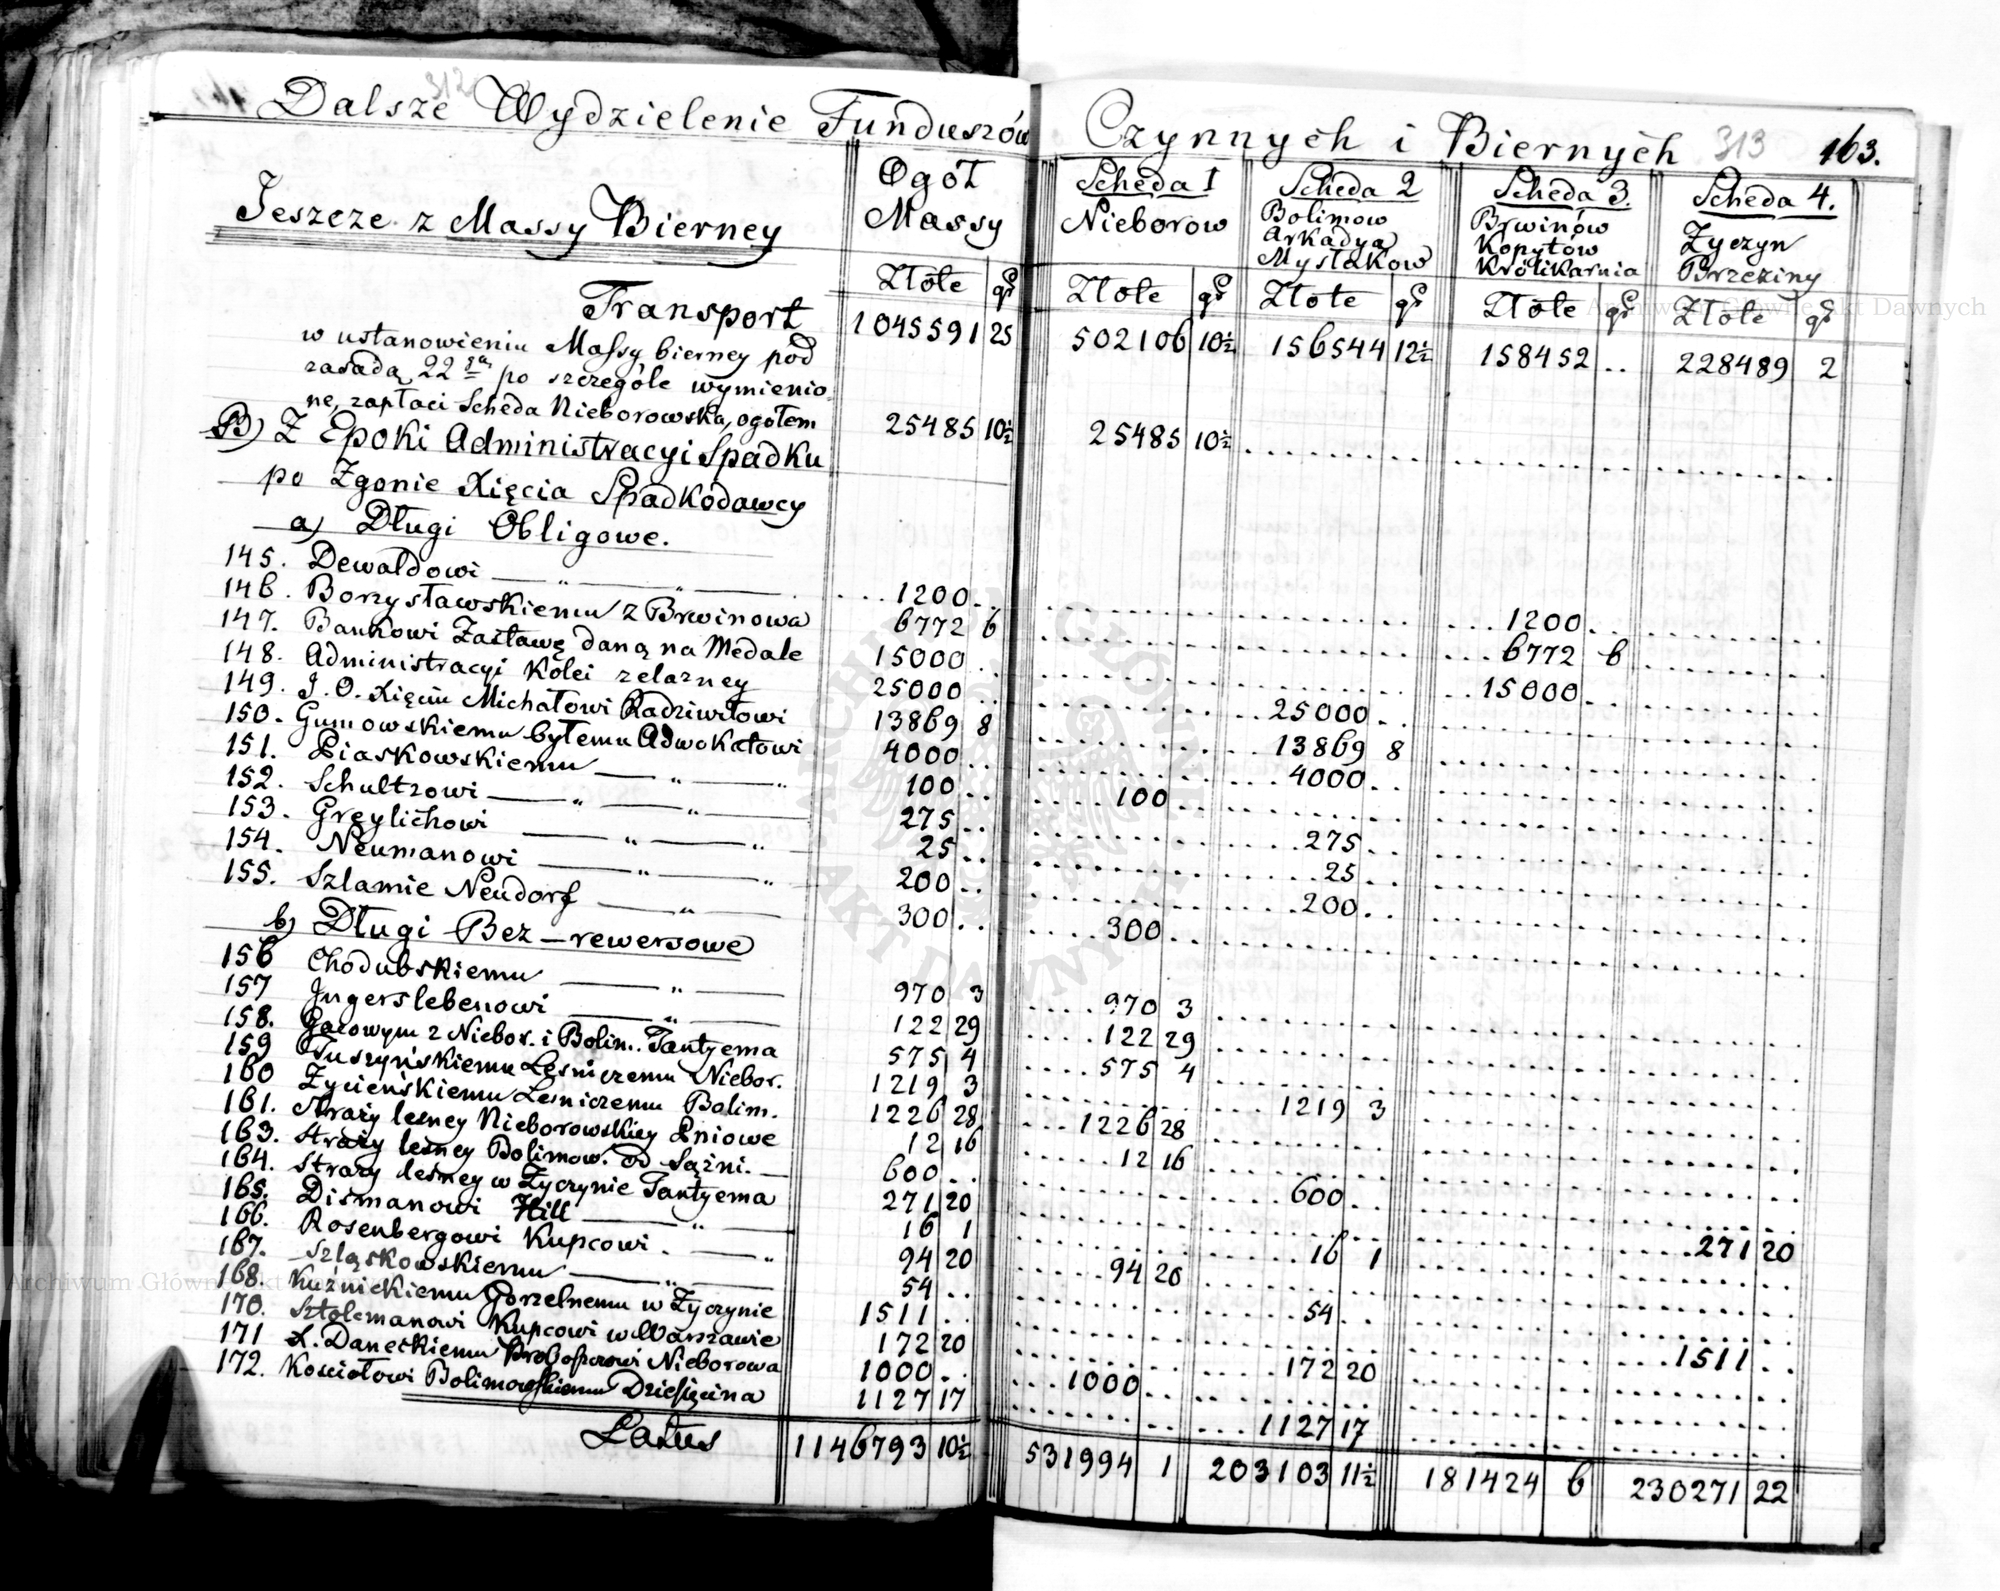 Dalsze Wydzielenie Funduszów Czynnych i Biernych 313 163.
312
Jeszcze z Massy Bierney
Ogół Massy
Scheda 1 Nieborow
Scheda 2 Bolimow Arkadya Mysłakow
Scheda 3. Brwinów Kopytów Królikarnia
Scheda 4. Zyczyn Brzeziny
Złote gr Złote gr Złote gr Złote gr Złote gr
Transport 1045591 25 502106 10½ 156544 12½ 158452 .. 228489 2
w ustanowieniu Massy bierney pod
zasadą 22gą po szczególe wymienio-
ne, zapłaci Scheda Nieborowska, ogołem 25485 10½ 25485 10½
B) Z Epoki Administracyi Spadku
po Zgonie Xięcia Spadkodawcy
a) Długi Obligowe.
145. Dewaldowi 1200 .. 1200 ..
146. Borzysławskiemu z Brwinowa 6772 6 6772 6
147. Bankowi Zastawę daną na Medale 15000 .. 15000 ..
148. Administracyi Kolei zelazney 25000 .. 25000 ..
149. J. O. Xięciu Michałowi Radziwiłowi 13869 8 13869 8
150. Gumowskiemu byłemu Adwokatowi 4000 .. 4000 ..
151. Piaskowskiemu 100 .. 100 ..
152. Schultzowi 275 .. 275 ..
153. Greylichowi 25 .. 25 ..
154. Neumanowi 200 .. 200 ..
155. Szlamie Neudorf 300 .. 300 ..
b) Długi Bez-rewersowe
156 Chodubskiemu 970 3 970 3
157 Jngerslebenowi 122 29 122 29
158. Gajowym z Niebor. i Bolim. Tantyema 575 4 575 4
159 Tuszyńskiemu Leśniczemu Niebor. 1219 3 1219 3
160 Zycieńskiemu Lesniczemu Bolim. 1226 28 1226 28
161. Straży lesney Nieborowskiey Pniowe 12 16 12 16
163. Straży lesney Bolimow. od Sążni. 600 .. 600 ..
164. Straży lesney w Zyczynie Tantyema 271 20 271 20
165. Dismanowi Hill 16 1 16 1
166. Rosenbergowi Kupcowi. 94 20 94 20
167. Szląskowskiemu 54 .. 54 ..
168. Kuznickiemu Gorzelnemu w Zyczynie 1511 .. 1511 ..
170. Sztolemanowi Kupcowi w Warszawie 172 20 172 20
171 X. Daneckiemu Proboszczowi Nieborowa 1000 .. 1000 ..
172. Kościołowi Bolimowskiemu Dziesięcina 1127 17 1127 17
Latus 1146793 10½ 531994 1 203103 11½ 181424 6 230271 22
Archiwum Główne Akt Dawnych
Archiwum Główne Akt Dawnych
ARCHIWUM GŁÓWNE AKT DAWNYCH W